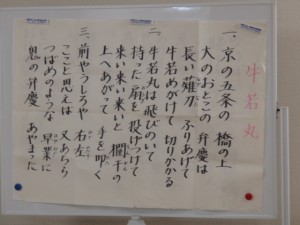 牛若丸
一、京の五条の 橋の上
大のおとこの 弁慶は
長い薙刀 ふりあげて
牛若めがけて 切りかかる
二、牛若丸は 飛びのいて
持った扇を 投げつけて
来い来い来いと 欄干の
上へあがって 手を叩く
三、前やうしろや 右左
ここと思えば 又あちら
つばめのような 早業に
鬼の弁慶 あやまった